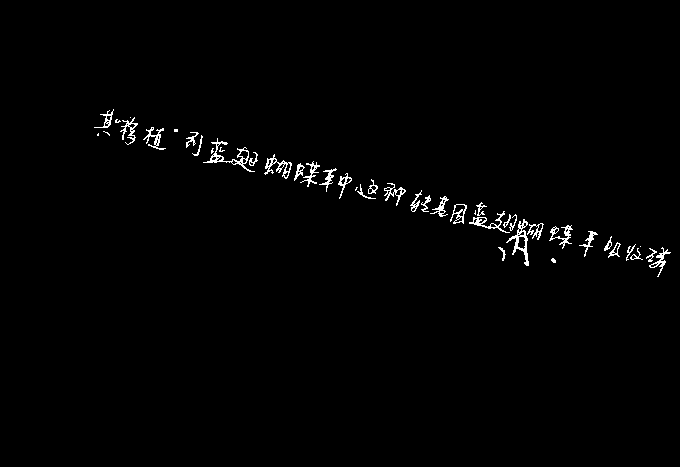 其“移植”到蓝翅蝴蝶草中这种转基因蓝翅蝴蝶草吸收磷